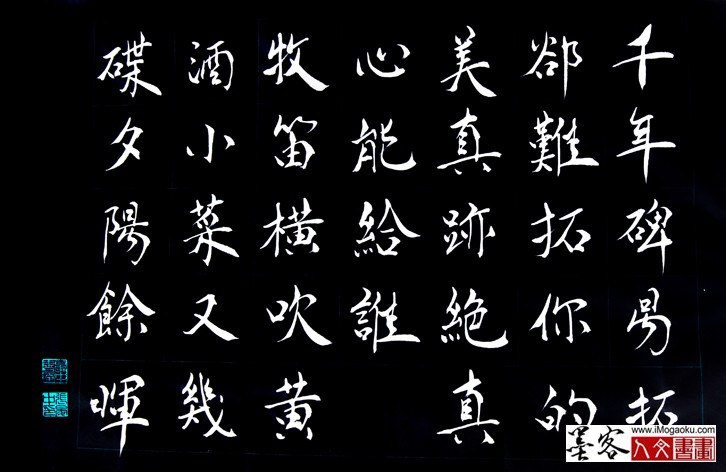 千年碑易拓
卻難拓你的
美真跡絕真
心能給誰
牧笛橫吹黃
酒小菜又幾
碟夕陽餘暉
墨客
人文書畫
www.iMogaoku.com